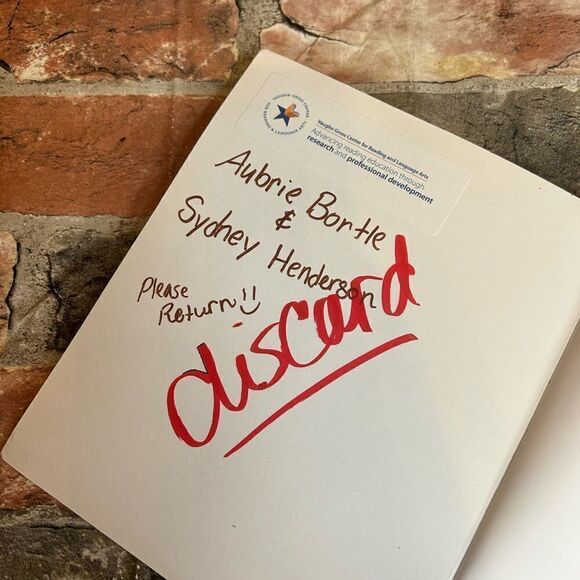 VAUGHN GROSS CENTER
FOR READING & LANGUAGE ARTS
Vaughn Gross Center for Reading and Language Arts
Advancing reading education through
research and professional development
Aubrie Bortle
&
Sydney Henderson
Please
Return!!
discard